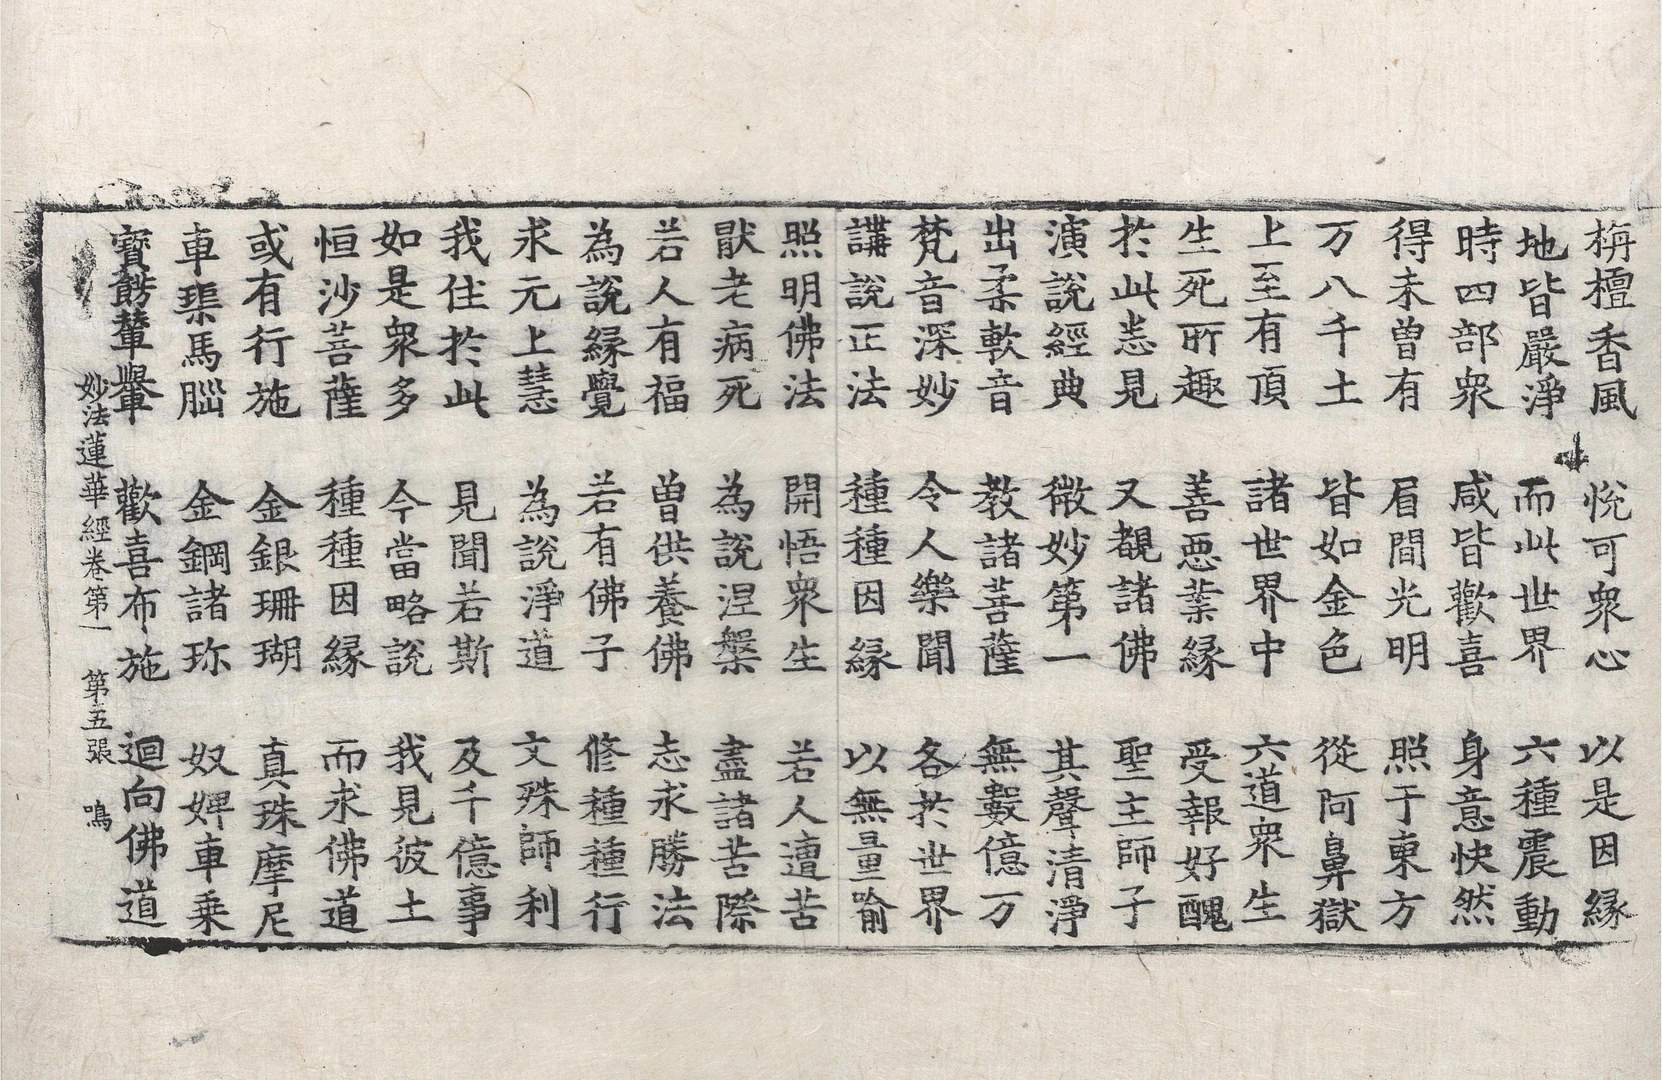 栴檀香風　悅可衆心　以是因縁
地皆嚴淨　而此世界　六種震動
時四部衆　咸皆歡喜　身意快然
得未曾有　眉間光明　照于東方
万八千土　皆如金色　從阿鼻獄
上至有頂　諸世界中　六道衆生
生死所趣　善惡業縁　受報好醜
於此悉見　又覩諸佛　聖主師子
演說經典　微妙第一　其聲清淨
出柔軟音　教諸菩薩　無數億万
梵音深妙　令人樂聞　各於世界
講說正法　種種因縁　以無量喻
照明佛法　開悟衆生　若人遭苦
猒老病死　為說涅槃　盡諸苦際
若人有福　曾供養佛　志求勝法
為說縁覺　若有佛子　修種種行
求元上慧　為說淨道　文殊師利
我住於此　見聞若斯　及千億事
如是衆多　今當略說　我見彼土
恒沙菩薩　種種因縁　而求佛道
或有行施　金銀珊瑚　真珠摩尼
車𤦲馬腦　金鋼諸珎　奴婢車乗
寶餝輦轝　歡喜布施　迴向佛道
妙法蓮華經卷第一　第五張　鳴